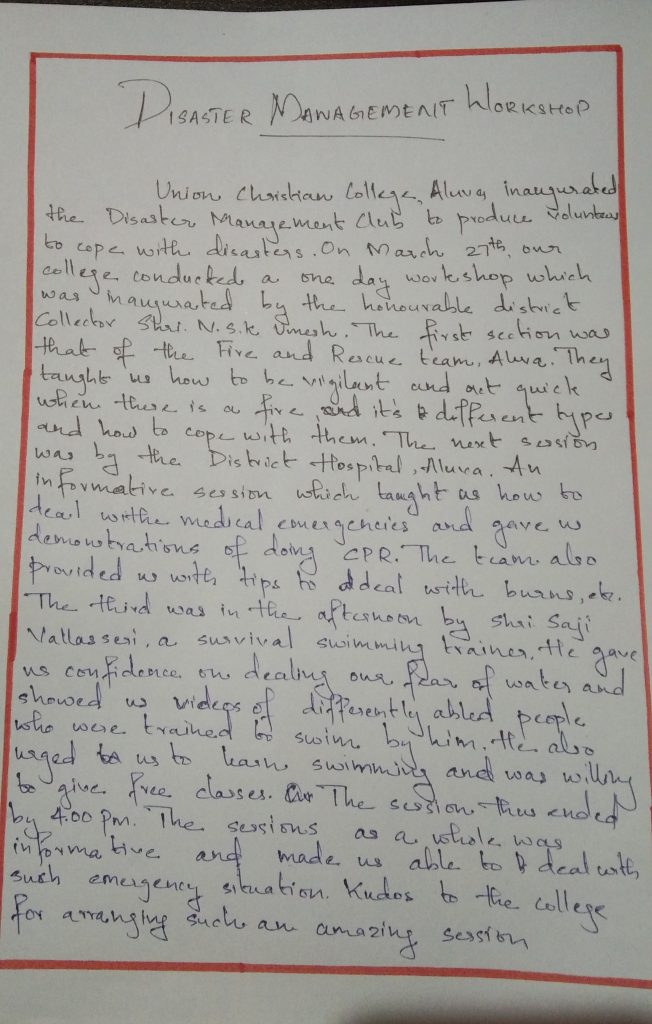 DISASTER MANAGEMENT WORKSHOP
Union Christian College, Aluva, inaugurated
the Disaster Management Club to produce volunteers
to cope with disasters. On March 27th, our
college conducted a one day workshop which
was inaugurated by the honourable district
Collector Shri. N.S.K Umesh. The first section was
that of the Fire and Rescue team, Aluva. They
taught us how to be vigilant and act quick
when there is a fire, and it's different types
and how to cope with them. The next session
was by the District Hospital, Aluva. An
informative session which taught us how to
deal withe medical emergencies and gave us
demonstrations of doing CPR. The team also
provided us with tips to deal with burns, etc.
The third was in the afternoon by Shri Saji
Vallasseri, a survival swimming trainer. He gave
us confidence on dealing our fear of water and
showed us videos of differently abled people
who were trained to swim by him. He also
urged us to learn swimming and was willing
to give free classes. The session thus ended
by 4:00 pm. The sessions as a whole was
informative and made us able to deal with
such emergency situation. Kudos to the college
for arranging such an amazing session